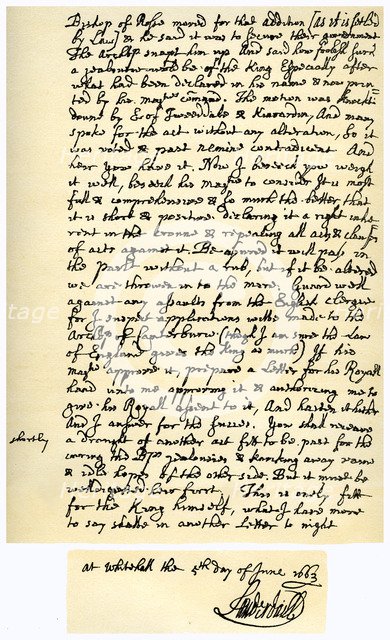 Bishop of Rosse moved for that addition [as it is setled
by Law] & he said it was to secure their government
The Archbp snapt him up And said how foolish such
a jealousie wold be of the King Especially after
what had been declared in his name & now prin=
ted by his majties comand. The motion was knockt
doune by E of Tweeddale & Kincardin, And many
spoke for the act without any alteration, So it
was voted & past nemine contradicent And
heir you have it. Now I beseech you weigh
it well, beseech his majtie to consider It is most
full & comprehensive & so much the better that
it is short & positive declaring it a right inhe
rent in the croune & repealing all acts & clauses
of acts against it. Be assured it will pass in
the Parlt without a rub, but if it be altered
we are throwen in to the mire. Guard well
against any assaults from the English clergie
for I suspect applications wilbe made to the
ArchBp of Canterburie (thogh I am sure the Law
of England gives the King as much) If his
majtie approve it, prepare a Letter for his Royall
hand unto me approving it & authorizing me to
give his Royall assent to it, And hasten it hither
And I answer for the success. You shall receave
shortly
a draught of another act fitt to be past for the
curing the Bps jealousies & knocking away vaine
& idle hopes of the other side. But it must be
well weighed here first. This is only fitt
for the King himself, what I have more
to say shalbe in another Letter to night
at Whitehall the 5th day of June 1663
Lauderdaill